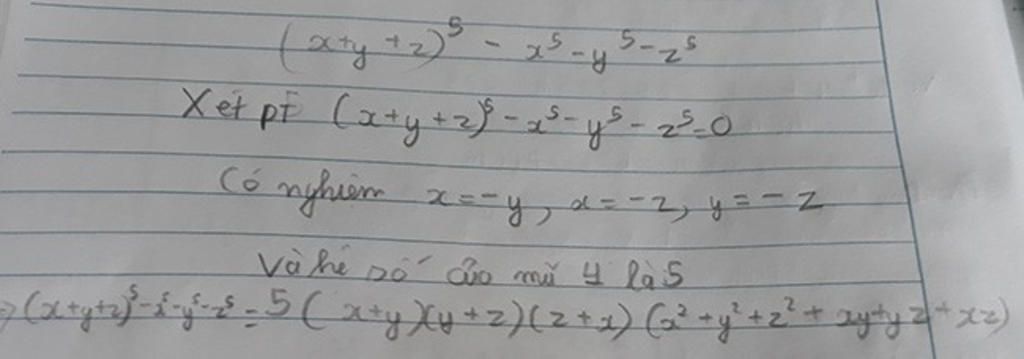 (x+y+z)⁵ - x⁵ - y⁵ - z⁵
Xét pt (x+y+z)⁵ - x⁵ - y⁵ - z⁵ = 0
Có nghiệm x = -y, x = -z, y = -z
Và hệ số của mũ 4 là 5
⇒ (x+y+z)⁵ - x⁵ - y⁵ - z⁵ = 5(x+y)(y+z)(z+x)(x² + y² + z² + xy + yz + xz)